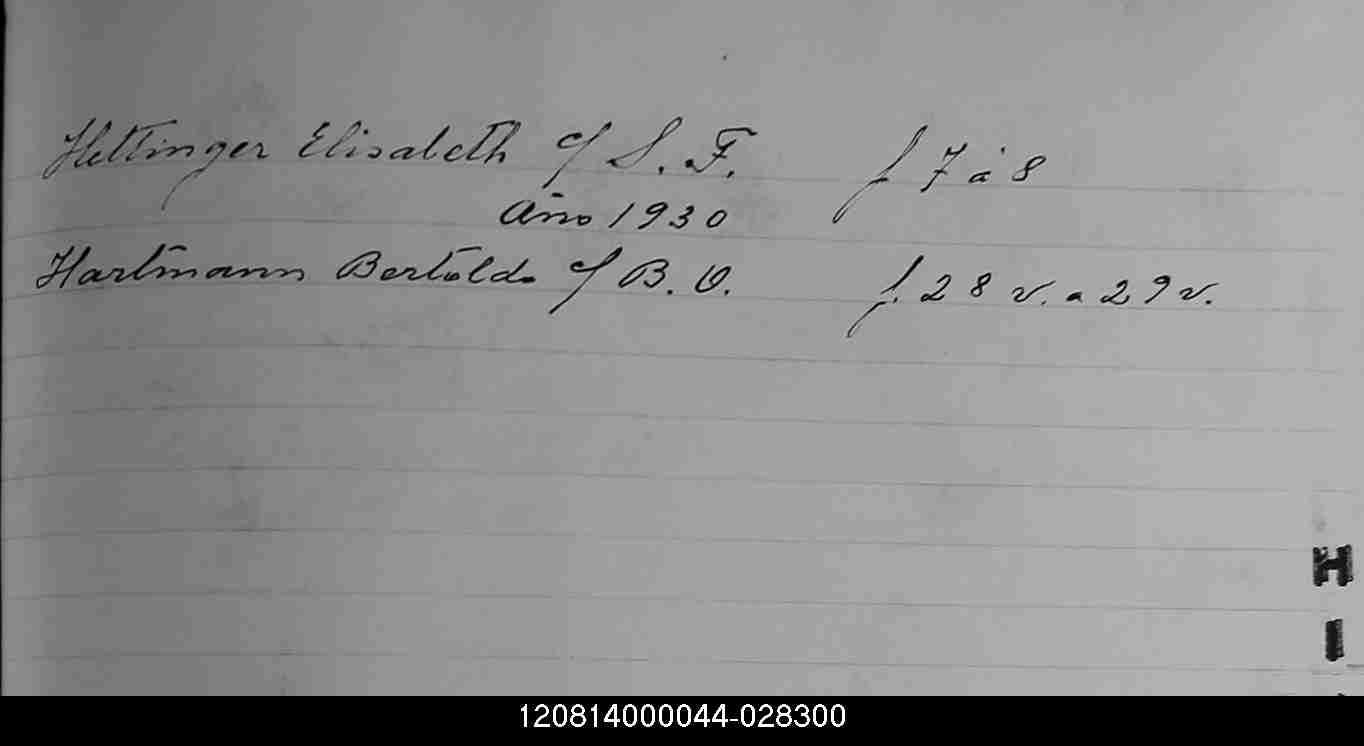 Hettinger Elisabeth c/ S. F. f 7 a 8
Año 1930
Hartmann Bertoldo c/ B. O. f. 28 v. a 29 v.
H
I
120814000044-028300